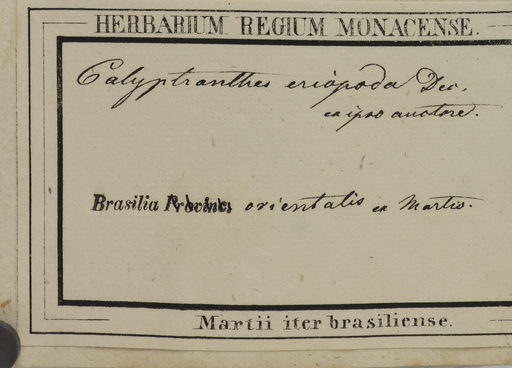 HERBARIUM REGIUM MONACENSE.
Calyptranthes eriopoda Dec.
ex ipso auctore.
Brasilia Provinc. orientalis ex Martio.
Martii iter brasiliense.